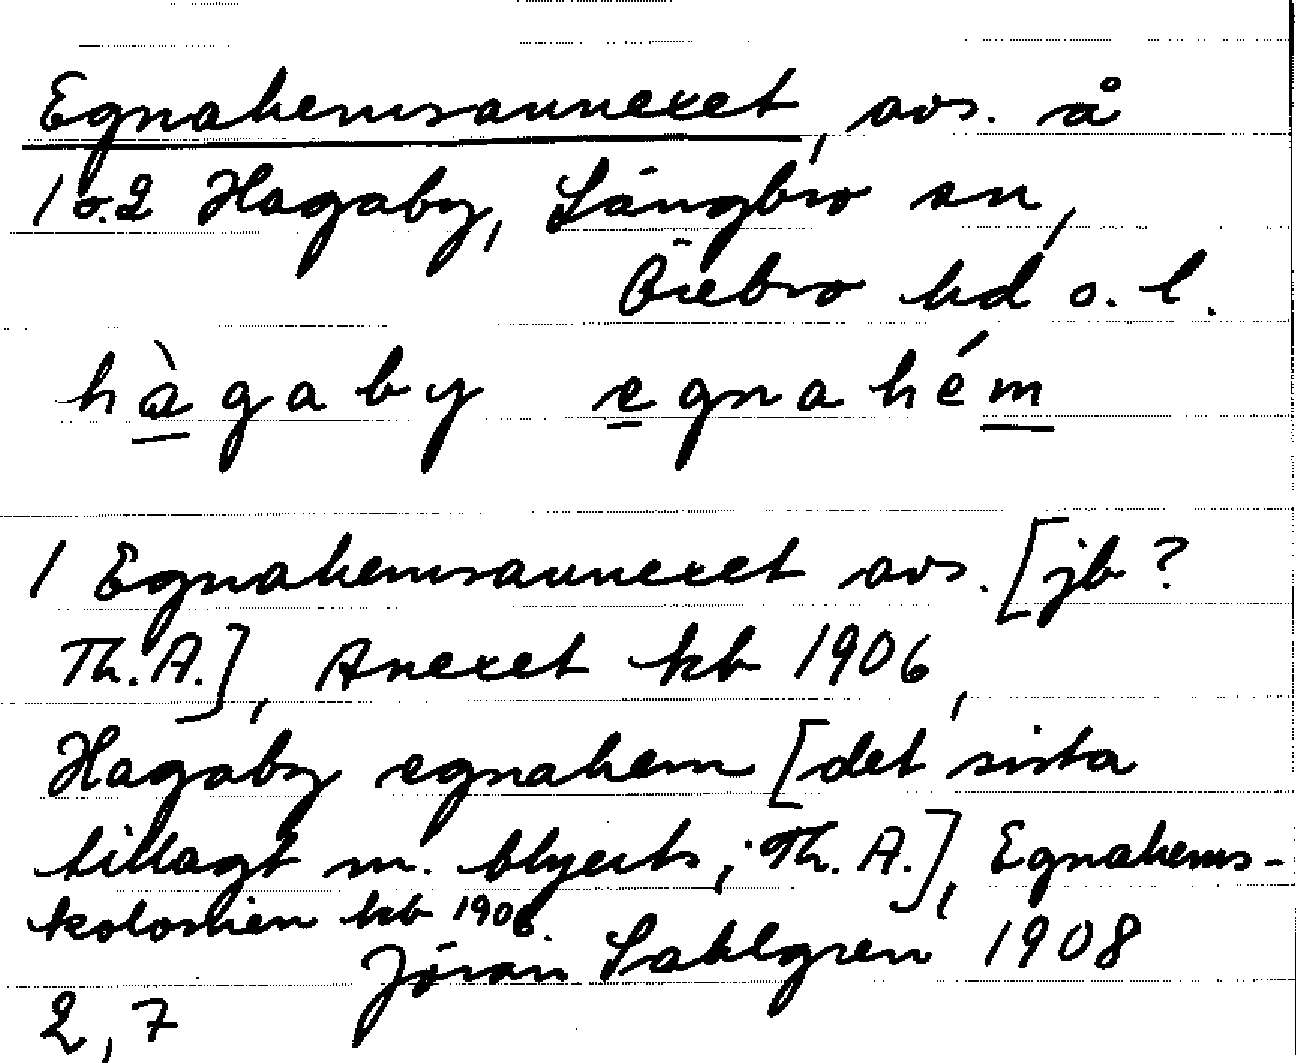 Egnahemsannexet, avs. å
1 o. 2 Hagaby, Längbro sn,
Örebro hd o. l.
hàgaby egnahém
1 Egnahemsannexet avs. [jb?
Th. A.], Anexet kb 1906,
Hagaby egnahem [det sista
tillagt m. blyerts; Th. A.], Egnahems-
kolonien kb 1906.
Jöran Sahlgren 1908
2, 7